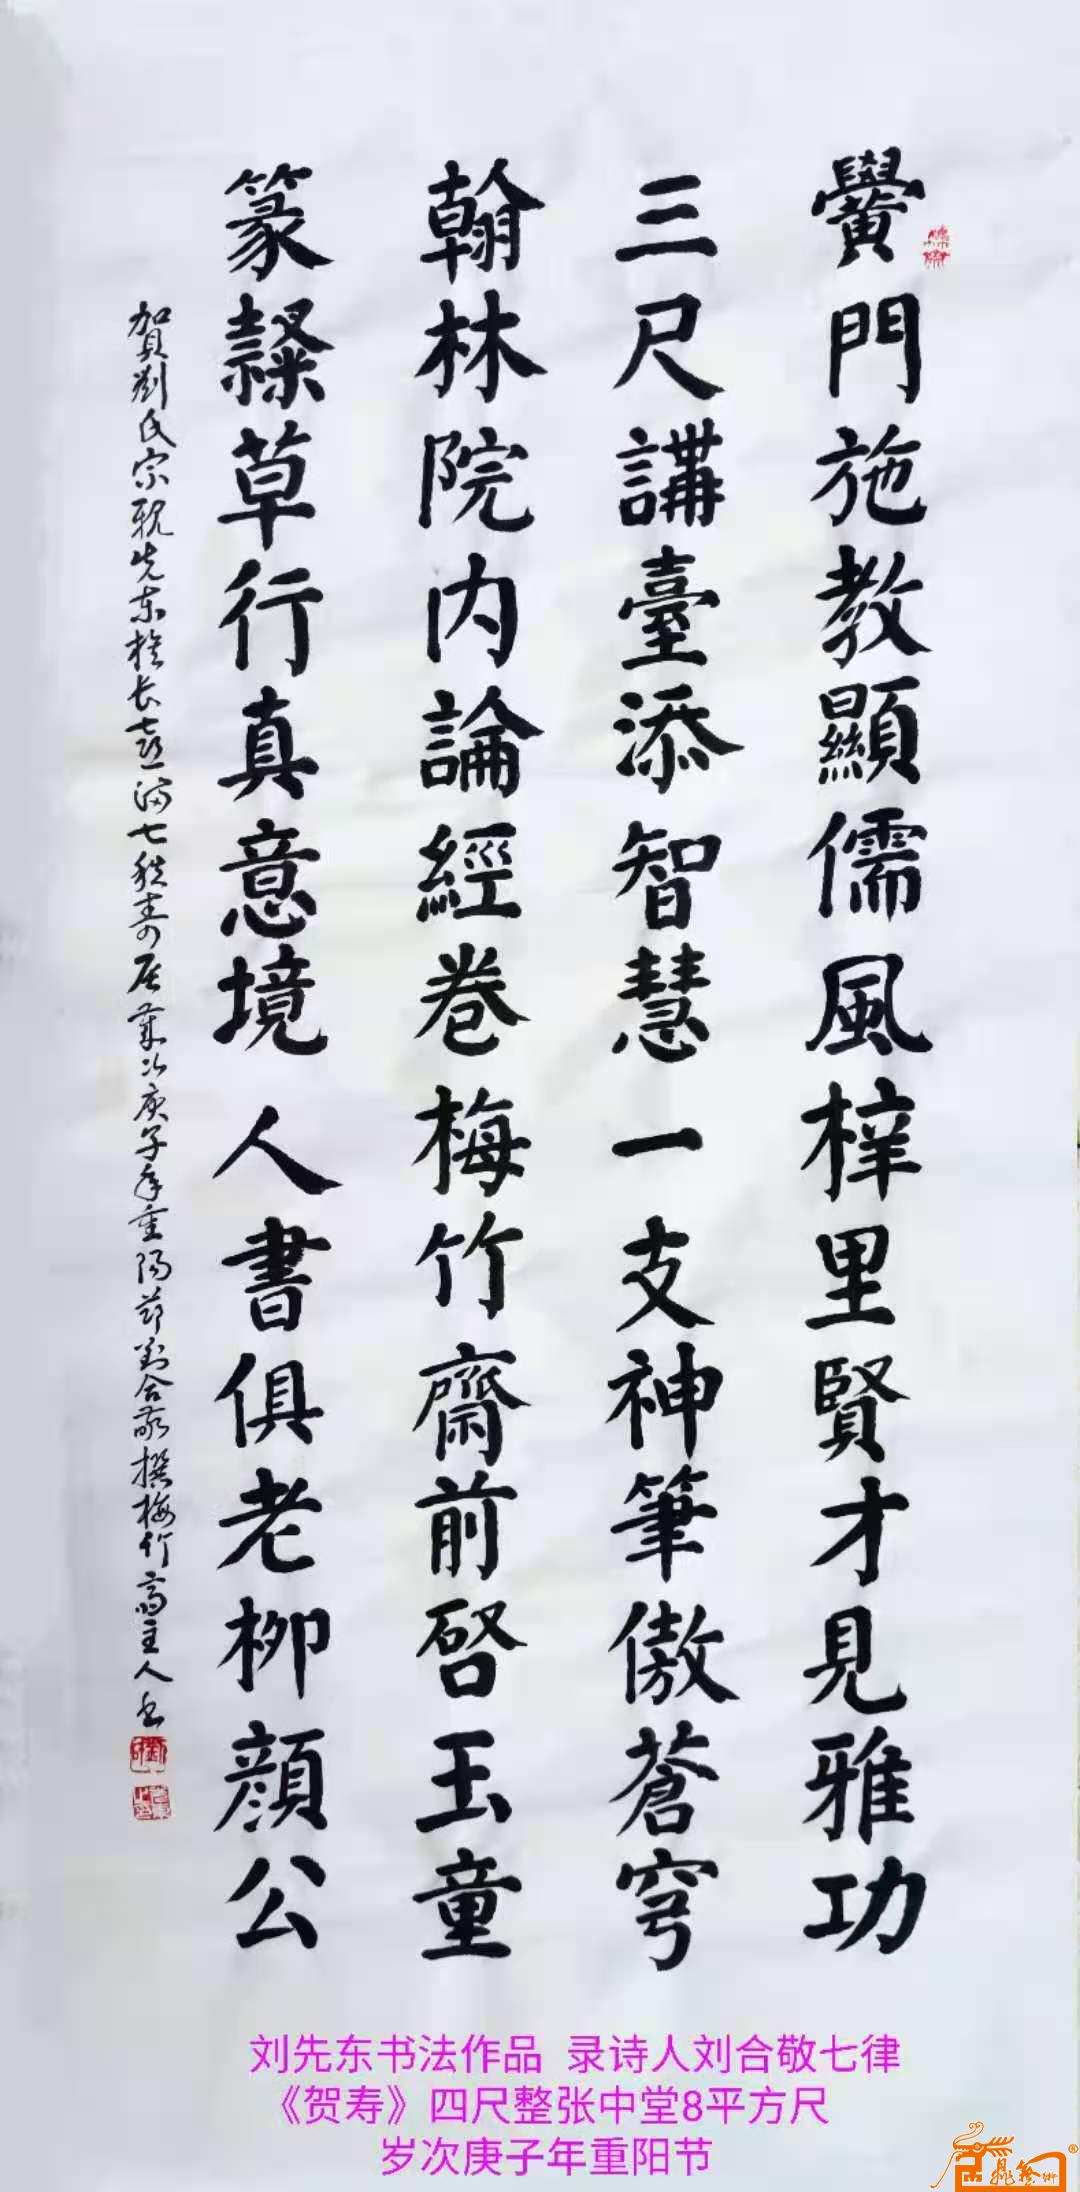 黌門施教顯儒風梓里賢才見雅功
三尺講臺添智慧一支神筆傲蒼穹
翰林院内論經卷梅竹齋前啓玉童
篆隸草行真意境人書俱老柳顔公
賀劉氏宗親先东族长喜满七秩壽辰歲次庚子年重陽節刘合敬撰梅竹齋主人书
刘先东书法作品 录诗人刘合敬七律
《贺寿》四尺整张中堂8平方尺
岁次庚子年重阳节